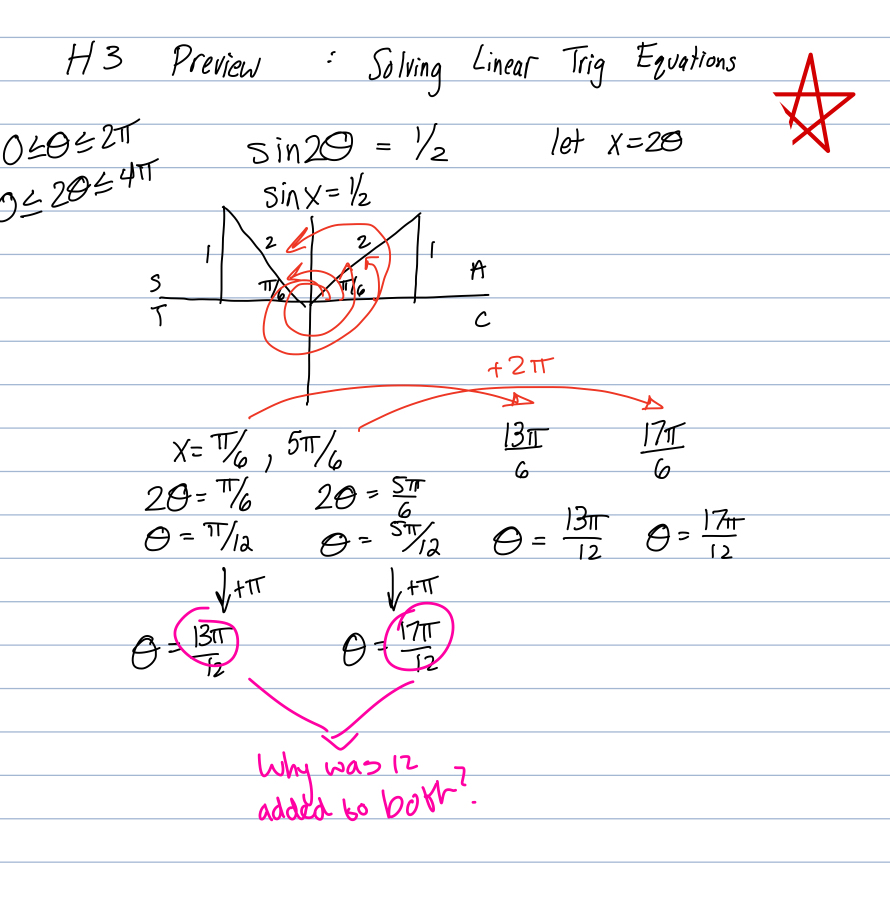 H3 Preview : Solving Linear Trig Equations
0≤θ≤2π
sin2θ = 1/2
let x=2θ
0≤2θ≤4π
sinx = 1/2
1 2 2 1
S π/6 π/6 A
T C
+2π
x = π/6 , 5π/6 13π/6 17π/6
2θ = π/6 2θ = 5π/6
θ = π/12 θ = 5π/12 θ = 13π/12 θ = 17π/12
+π +π
θ = 13π/12 θ = 17π/12
Why was 12
added to both?